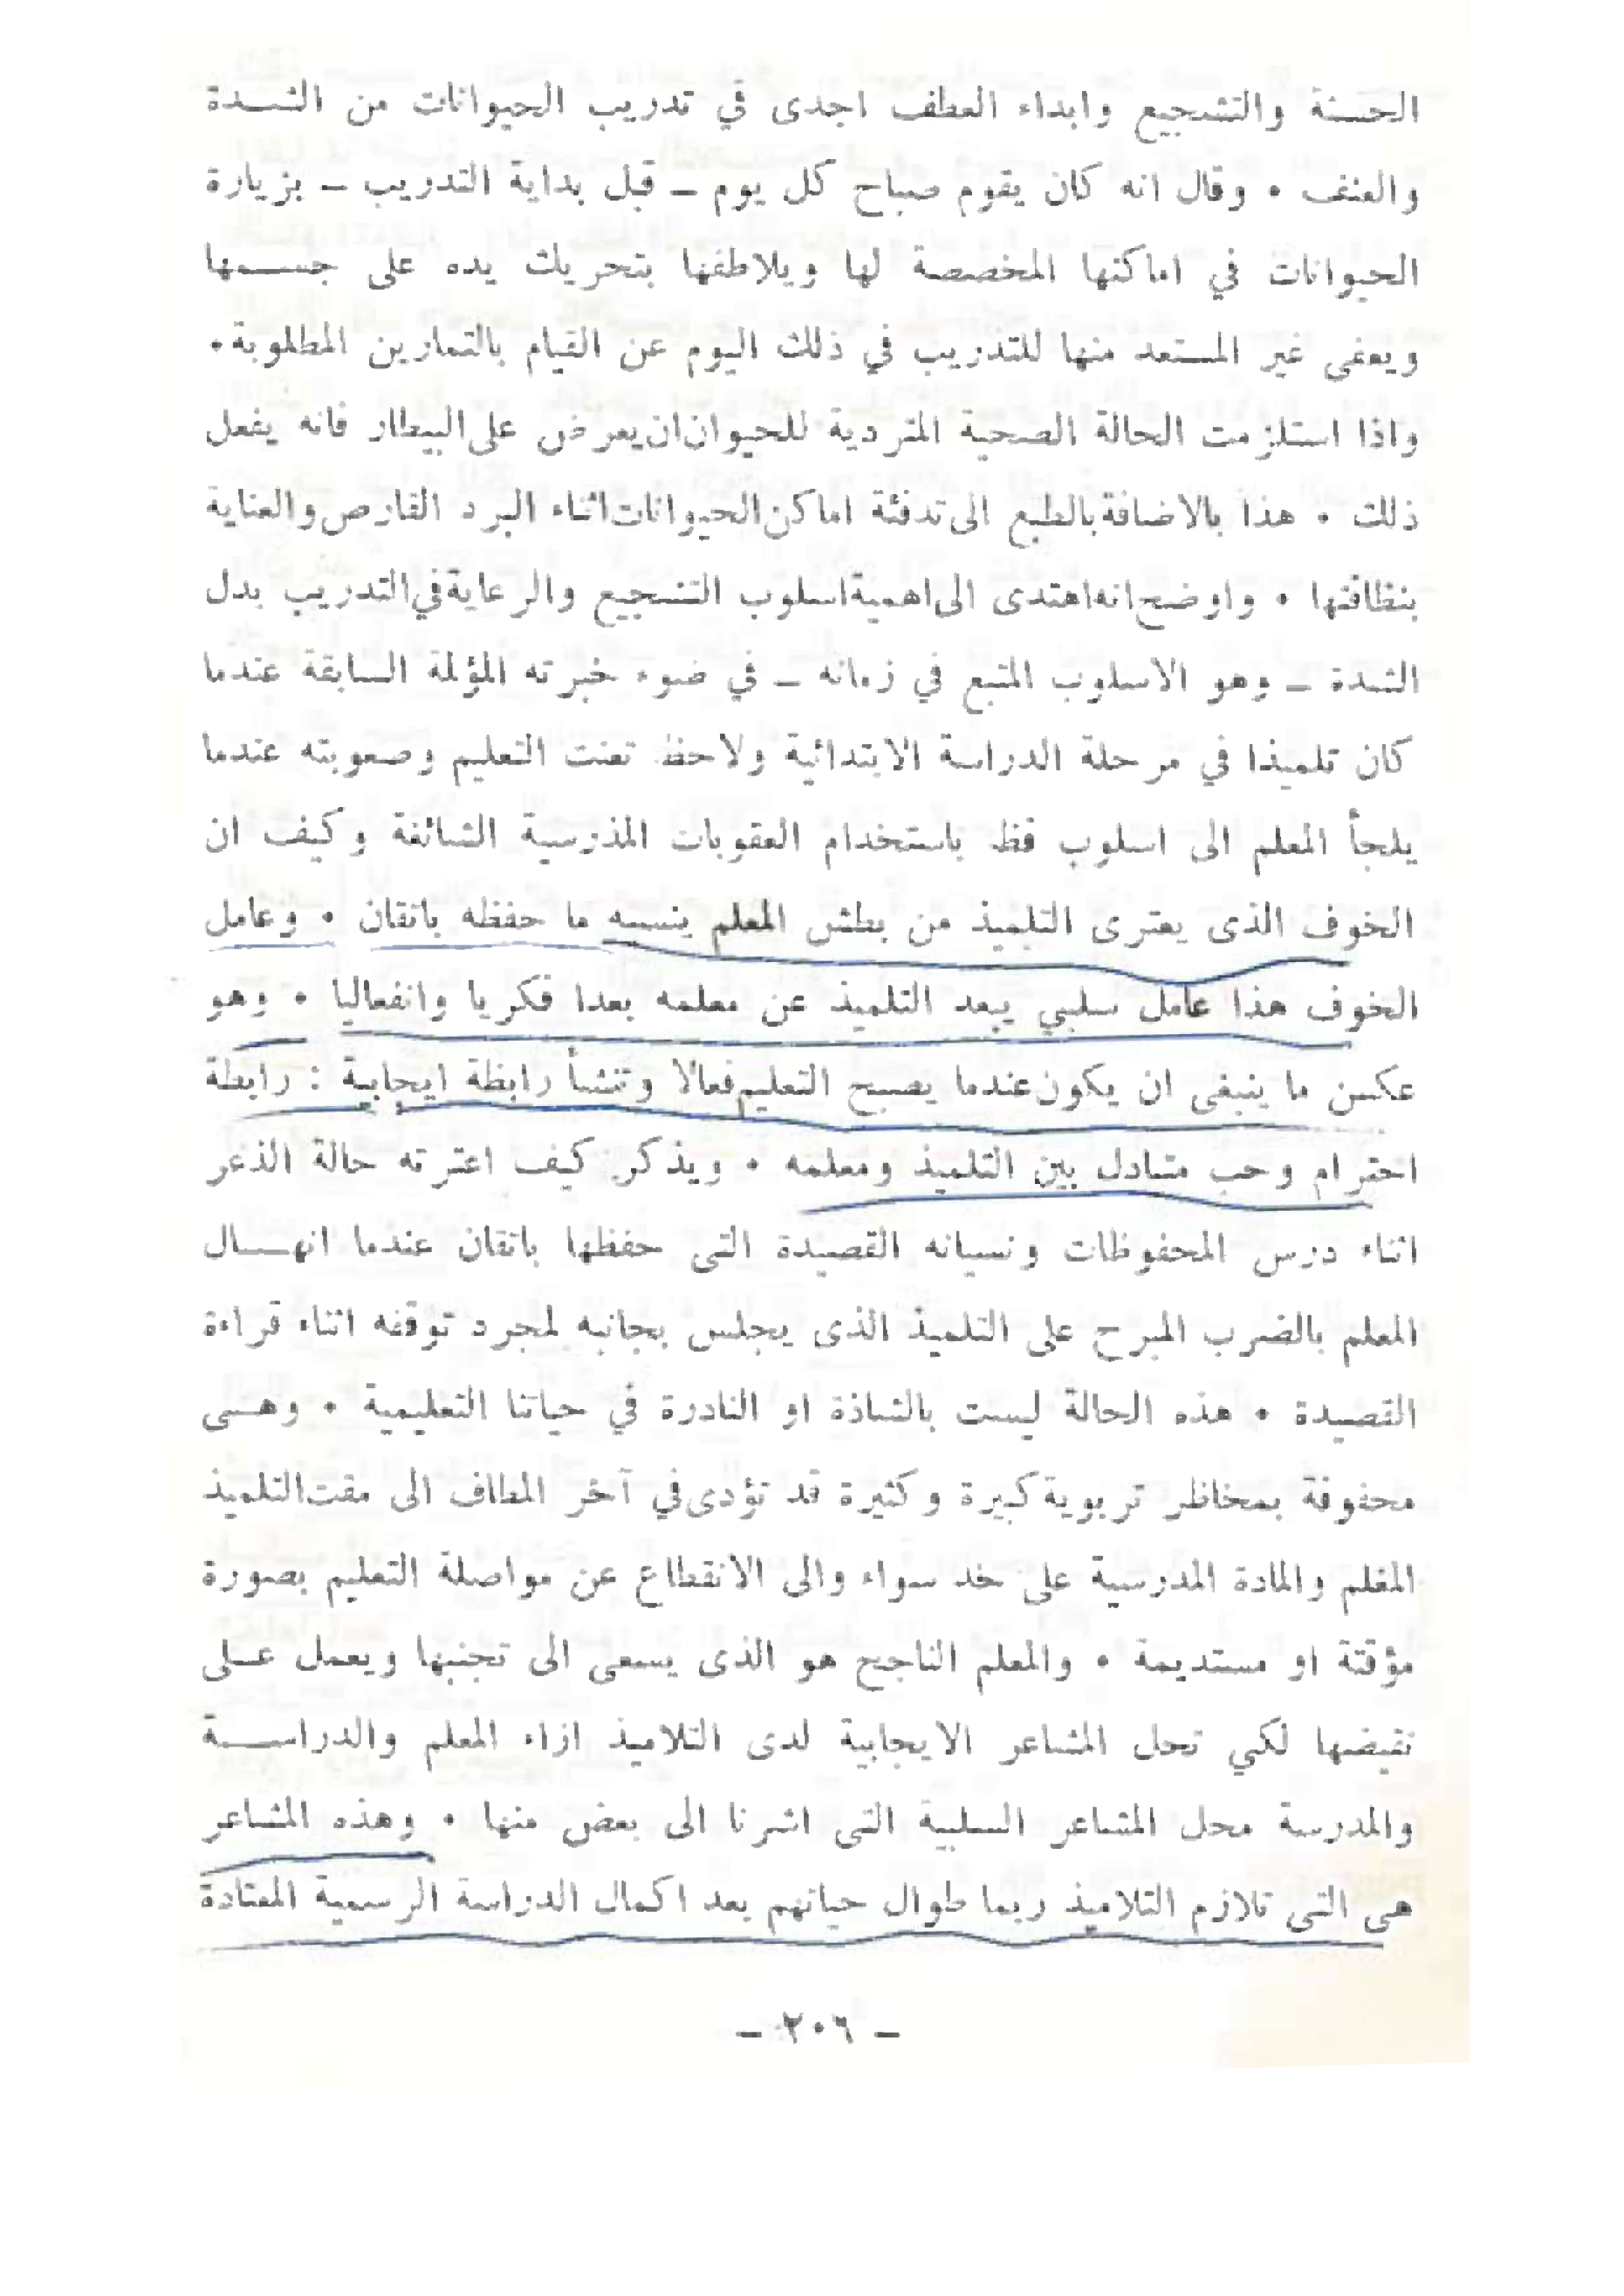 الحسنة والتشجيع وابداء العطف اجدى في تدريب الحيوانات من الشــدة
والعنف • وقال انه كان يقوم صباح كل يوم – قبل بداية التدريب – بزيارة
الحيوانات في اماكنها المخصصة لها ويلاطفها بتحريك يده على جســمها
ويعفى غير المستعد منها للتدريب في ذلك اليوم عن القيام بالتمارين المطلوبة •
واذا استلزمت الحالة الصحية المتردية للحيوان ان يعرض على البيطار فانه يفعل
ذلك • هذا بالاضافة بالطبع الى تدفئة اماكن الحيوانات اثناء البرد القارص والعناية
بنظافتها • واوضح انه اهتدى الى اهمية اسلوب التشجيع والرعاية في التدريب بدل
الشدة – وهو الاسلوب المتبع في زمانه – في ضوء خبرته المؤلمة السابقة عندما
كان تلميذا في مرحلة الدراسة الابتدائية ولاحظ تعنت التعليم وصعوبته عندما
يلجأ المعلم الى اسلوب فظ باستخدام العقوبات المدرسية الشائعة وكيف ان
الخوف الذى يعترى التلميذ من بطش المعلم ينسيه ما حفظه باتقان • وعامل
الخوف هذا عامل سلبي يبعد التلميذ عن معلمه بعدا فكريا وانفعاليا • وهو
عكس ما ينبغى ان يكون عندما يصبح التعليم فعالا وتنشأ رابطة ايجابية : رابطة
احترام وحب متبادل بين التلميذ ومعلمه • ويذكر كيف اعترته حالة الذعر
اثناء درس المحفوظات ونسيانه القصيدة التى حفظها باتقان عندما انهــال
المعلم بالضرب المبرح على التلميذ الذى يجلس بجانبه لمجرد توقفه اثناء قراءة
القصيدة • هذه الحالة ليست بالشاذة او النادرة في حياتنا التعليمية • وهــى
محفوفة بمخاطر تربوية كبيرة وكثيرة قد تؤدى في آخر المطاف الى مقت التلميذ
المعلم والمادة المدرسية على حد سواء والى الانقطاع عن مواصلة التعليم بصورة
مؤقتة او مستديمة • والمعلم الناجح هو الذى يسعى الى تجنبها ويعمل عــلى
نقيضها لكي تحل المشاعر الايجابية لدى التلاميذ ازاء المعلم والدراســة
والمدرسة محل المشاعر السلبية التى اشرنا الى بعض منها • وهذه المشاعر
هى التى تلازم التلاميذ ربما طوال حياتهم بعد اكمال الدراسة الرسمية المعتادة
– ٢٠٦ –